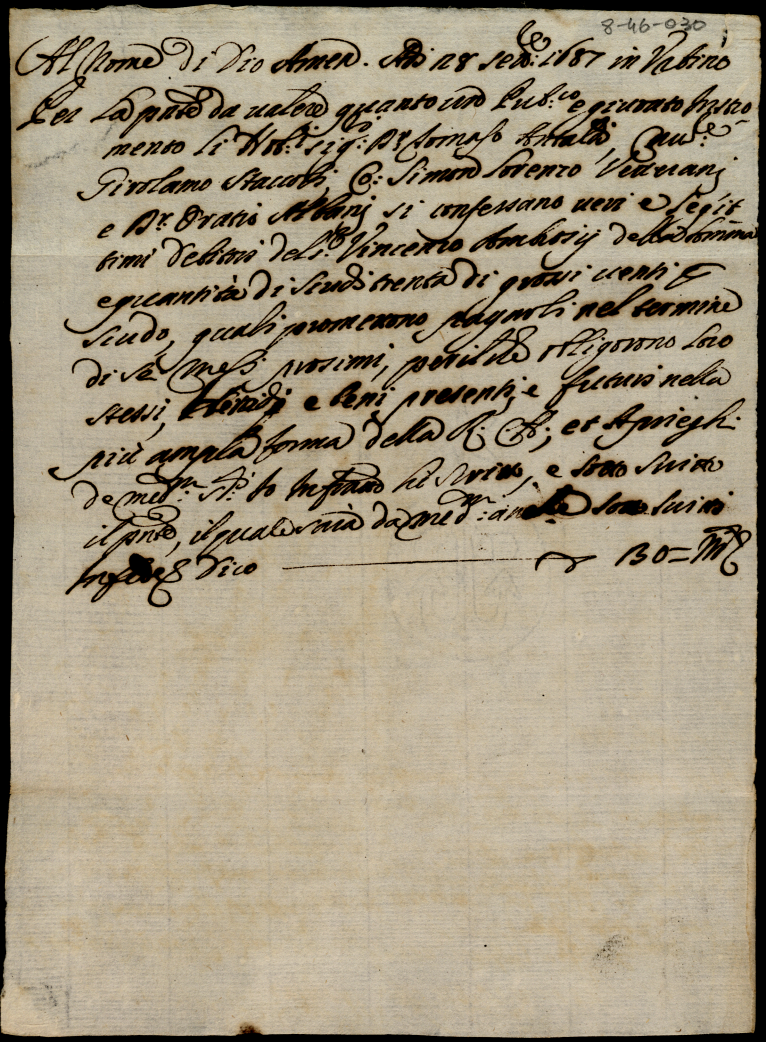 8-46-030
Al Nome di Dio Amen. Adi 28 sett.e 1687 in Vrbino
Per la pnte da valere quanto un Pub.co e giurato Instro
mento li Nob.i sig.ri Dr. Tomaso Cau.e
Girolamo Staccoli, C: Simon Lorenzo Vetterani
e Dr. Oratio Albani si confessano ueri e legit
timi debitori del S.r Vincenzo Ambrosij della somma
e quantità di scudi trenta di grossi uenti p
scudo, quali promettono pagarli nel termine
di sei mesi prossimi, per il che obligorono loro
stessi, heredi e beni presenti, e futuri nella
più ampla forma della R: C: A:, et à prieghi
de med.mi Io Infratto hò scritto, e sotto scritto
il pnte, il quale sarà da med.mi anche sotto scritto
In fede dico 30 =